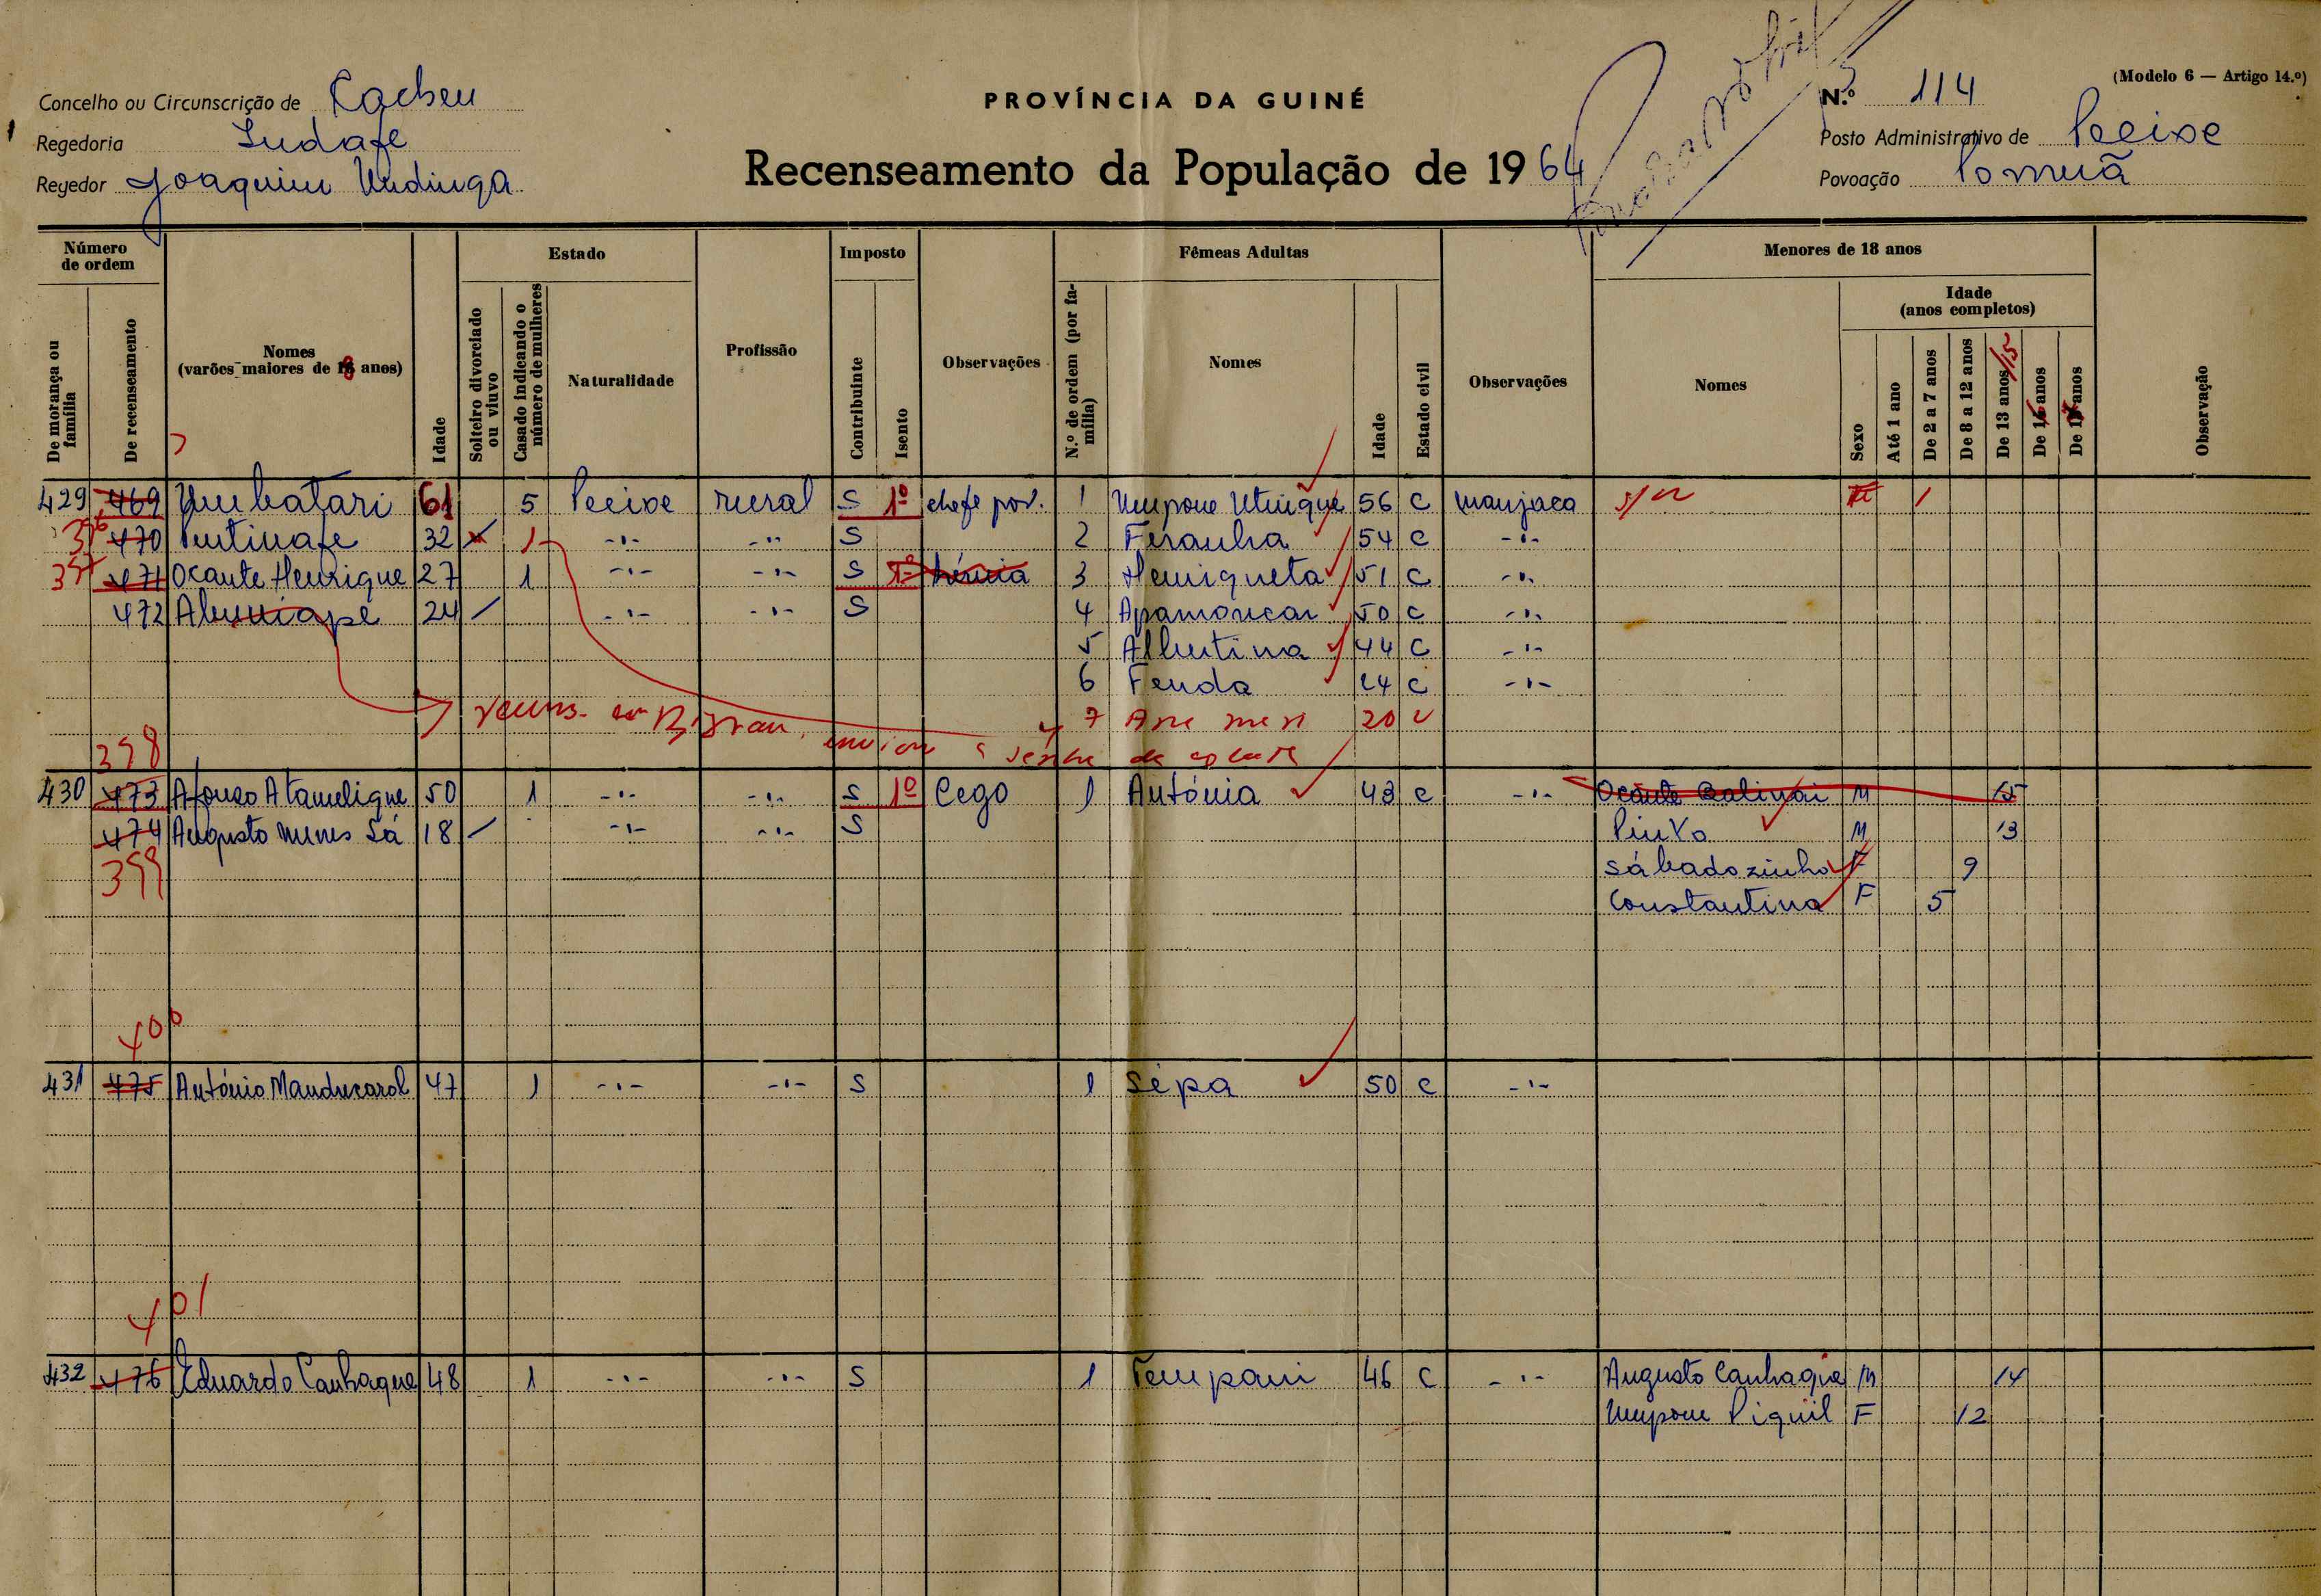 (Modelo 6 — Artigo 14.º)
Concelho ou Circunscrição de Cacheu
PROVÍNCIA DA GUINÉ
N.º 114
Regedoria
Posto Administrativo de Pecixe
Regedor Joaquim Undinga
Recenseamento da População de 1964
Povoação Pomuã
Número de ordem
Estado
Imposto
Fêmeas Adultas
Menores de 18 anos
Idade (anos completos)
De morança ou família
De recenseamento
Nomes (varões maiores de 18 anos)
Idade
Solteiro divorciado ou viuvo
Casado indicando o número de mulheres
Naturalidade
Profissão
Contribuinte
Isento
Observações
N.º de ordem (por família)
Nomes
Idade
Estado civil
Observações
Nomes
Sexo
Até 1 ano
De 2 a 7 anos
De 8 a 12 anos
De 13 anos/15
De anos
De anos
Observação
429 469 Umbatari 61 5 Pecixe rural S 1º chefe pov. 1 56 C manjaca s/n 1
396 470 32 1 -"- -"- S 2 54 C -"-
397 471 Ocante Henrique 27 1 -"- -"- S hérnia 3 Henriqueta 51 C -"-
472 24 -"- -"- S 4 Apamoncar 50 C -"-
5 Albertina 44 C -"-
6 Fenda 24 C -"-
7 20
398
430 473 Afonso Atamelique 50 1 -"- -"- S 1º Cego 1 Antónia 43 C -"- Ocante M 15
474 Augusto Mines Sá 18 -"- -"- S Pinto M 13
399 Sábadozinho F 9
Constantina F 5
400
431 475 António Manducarol 47 1 -"- -"- S 1 Sépa 50 C -"-
401
432 476 Eduardo Canhaque 48 1 -"- -"- S 1 Tempani 46 C -"- Augusto Canhaque M 14
Umpone Piquil F 12